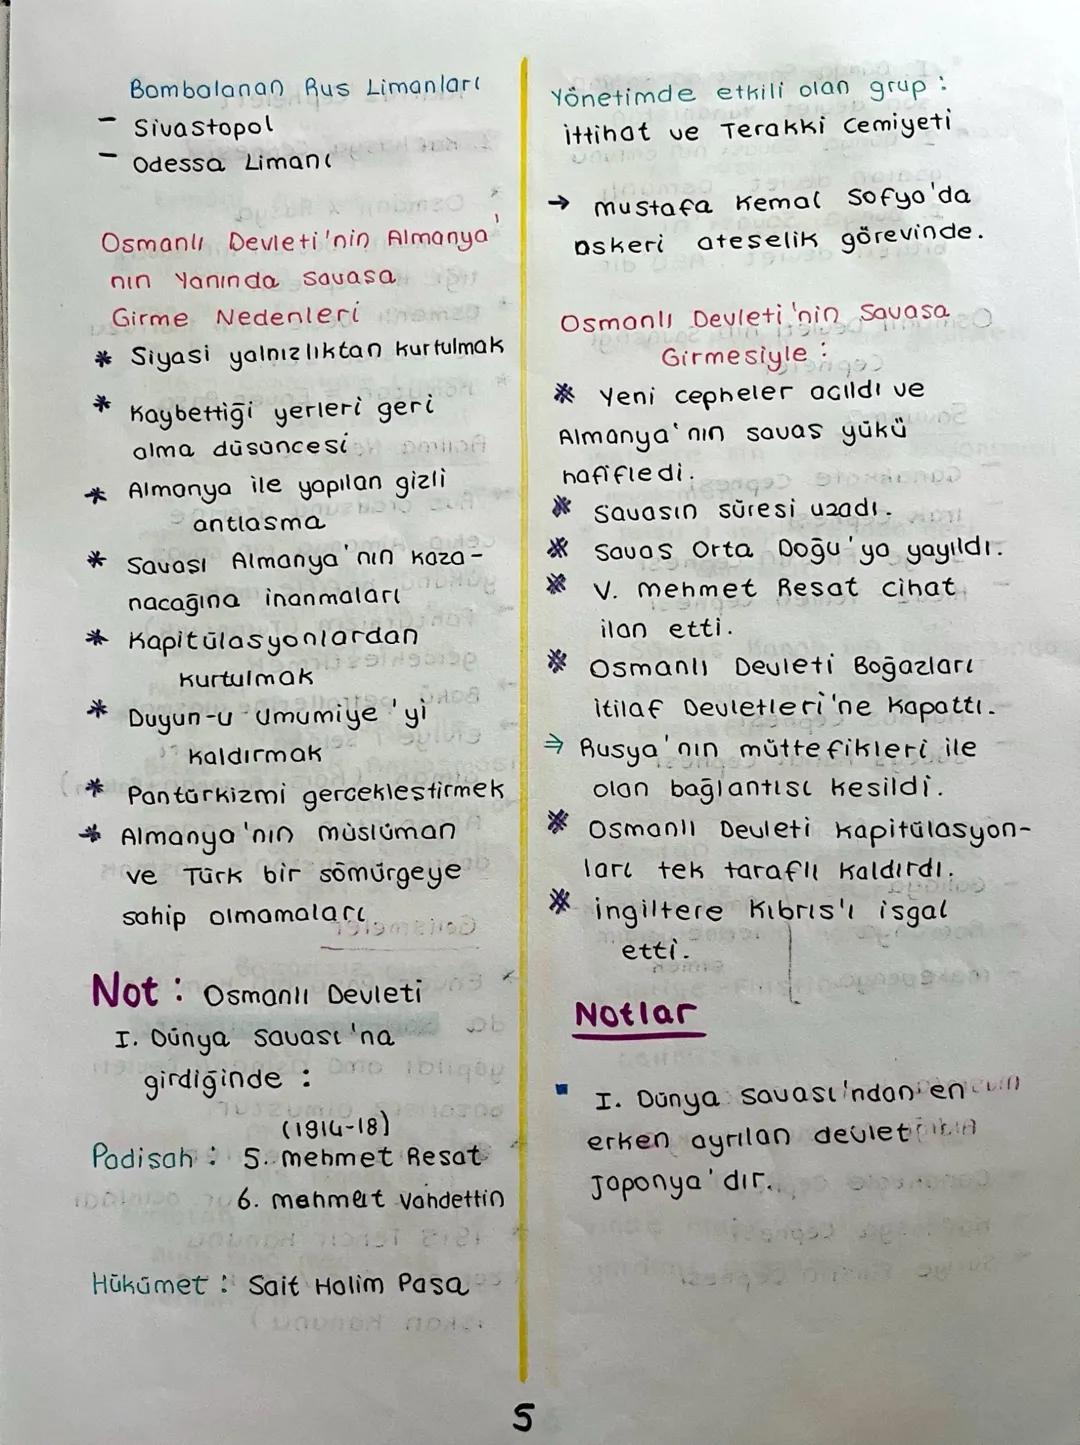 Bombalanan Rus Limanları
- Sivastopol
- Odessa Limanı
Osmanlı Devleti'nin Almanya'
nın Yanında Savasa
Girme Nedenleri
* Siyasi yalnızlıktan kurtulmak
* Kaybettiği yerleri geri
alma düsüncesi
* Almanya ile yapılan gizli
antlasma
* Savası Almanya'nın kaza-
nacağına inanmaları
* Kapitülasyonlardan
kurtulmak
* Duyun-u Umumiye'yi
kaldırmak
* Pantürkizmi gerceklestirmek
* Almanya'nın müslüman
ve Türk bir sömürgeye
sahip olmamaları
Not : Osmanlı Devleti
I. Dünya Savası'na
girdiğinde :
(1914-18)
Padisah : 5. mehmet Resat
6. mehmet Vahdettin
Hükümet : Sait Halim Pasa
Yönetimde etkili olan grup :
ittihat ve Terakki Cemiyeti
→ mustafa Kemal Sofya'da
askeri ateselik görevinde.
Osmanlı Devleti'nin Savasa
Girmesiyle :
* Yeni cepheler acıldı ve
Almanya'nın savas yükü
hafifledi.
* Savasın süresi uzadı.
* Savas Orta Doğu'ya yayıldı.
* V. mehmet Resat cihat
ilan etti.
* Osmanlı Devleti Boğazları
itilaf Devletleri'ne kapattı.
⇒ Rusya'nın müttefikleri ile
olan bağlantısı kesildi.
* Osmanlı Devleti kapitülasyon-
ları tek taraflı kaldırdı.
* ingiltere Kıbrıs'ı isgal
etti.
Notlar
▪ I. Dünya savası'ndan en
erken ayrılan devlet
Japonya'dır.
5